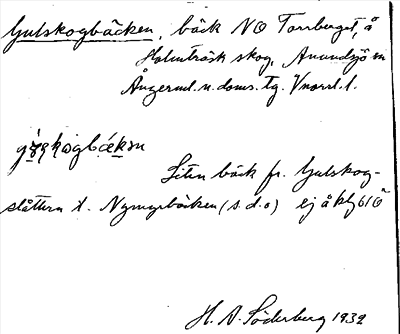 Gulskogbäcken, bäck NO Torrberget, å
Holmträsk skog, Anundsjö sn
Ångerml. n. doms. tg. Vnorrl. l.
Liten bäck fr. Gulskog-
slåttern t. Nymyrbäcken (s.d.o) ej å kbl 61 Ö
H. A. Söderberg 1932